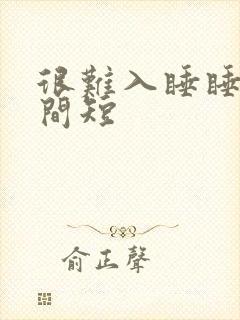 很難入睡睡
間短
俞正聲